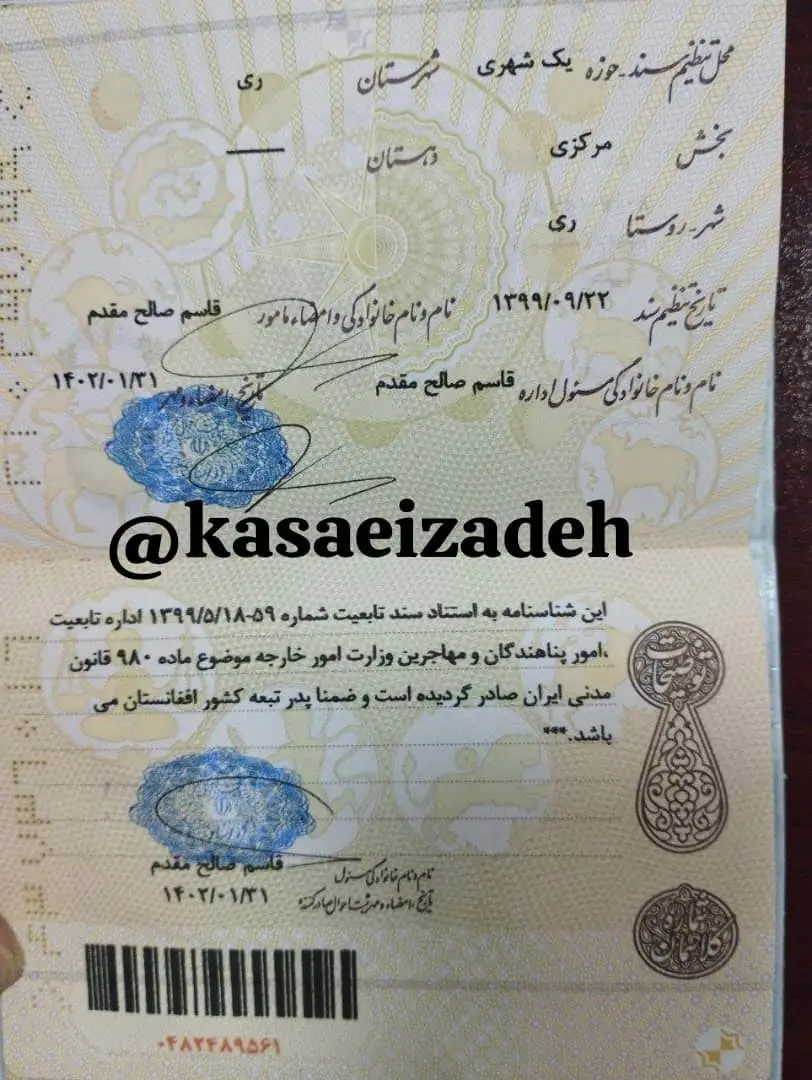 محل تنظیم سند - حوزه یک شهری شهرستان ری
بخش مرکزی دهستان ——
شهر - روستا ری
تاریخ تنظیم سند ۱۳۹۹/۰۹/۲۲ نام و نام خانوادگی و امضاء مامور قاسم صالح مقدم
نام و نام خانوادگی مسئول اداره قاسم صالح مقدم تاریخ، امضاء و مهر ۱۴۰۲/۰۱/۳۱
@kasaeizadeh
توضیحات
این شناسنامه به استناد سند تابعیت شماره ۵۹-۱۳۹۹/۵/۱۸ اداره تابعیت
،امور پناهندگان و مهاجرین وزارت امور خارجه موضوع ماده ۹۸۰ قانون
مدنی ایران صادر گردیده است و ضمنا پدر تبعه کشور افغانستان می
باشد.***
نام و نام خانوادگی مسئول قاسم صالح مقدم
تاریخ، امضاء و مهر ثبت احوال صادر کننده ۱۴۰۲/۰۱/۳۱
۰۴۸۲۴۸۹۵۶۱